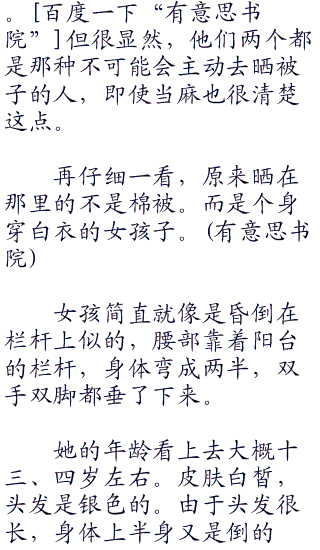 。[百度一下“有意思书
院”]但很显然，他们两个都
是那种不可能会主动去晒被
子的人，即使当麻也很清楚
这点。
再仔细一看，原来晒在
那里的不是棉被。而是个身
穿白衣的女孩子。(有意思书
院)
女孩简直就像是昏倒在
栏杆上似的，腰部靠着阳台
的栏杆，身体弯成两半，双
手双脚都垂了下来。
她的年龄看上去大概十
三、四岁左右。皮肤白皙，
头发是银色的。由于头发很
长，身体上半身又是倒的